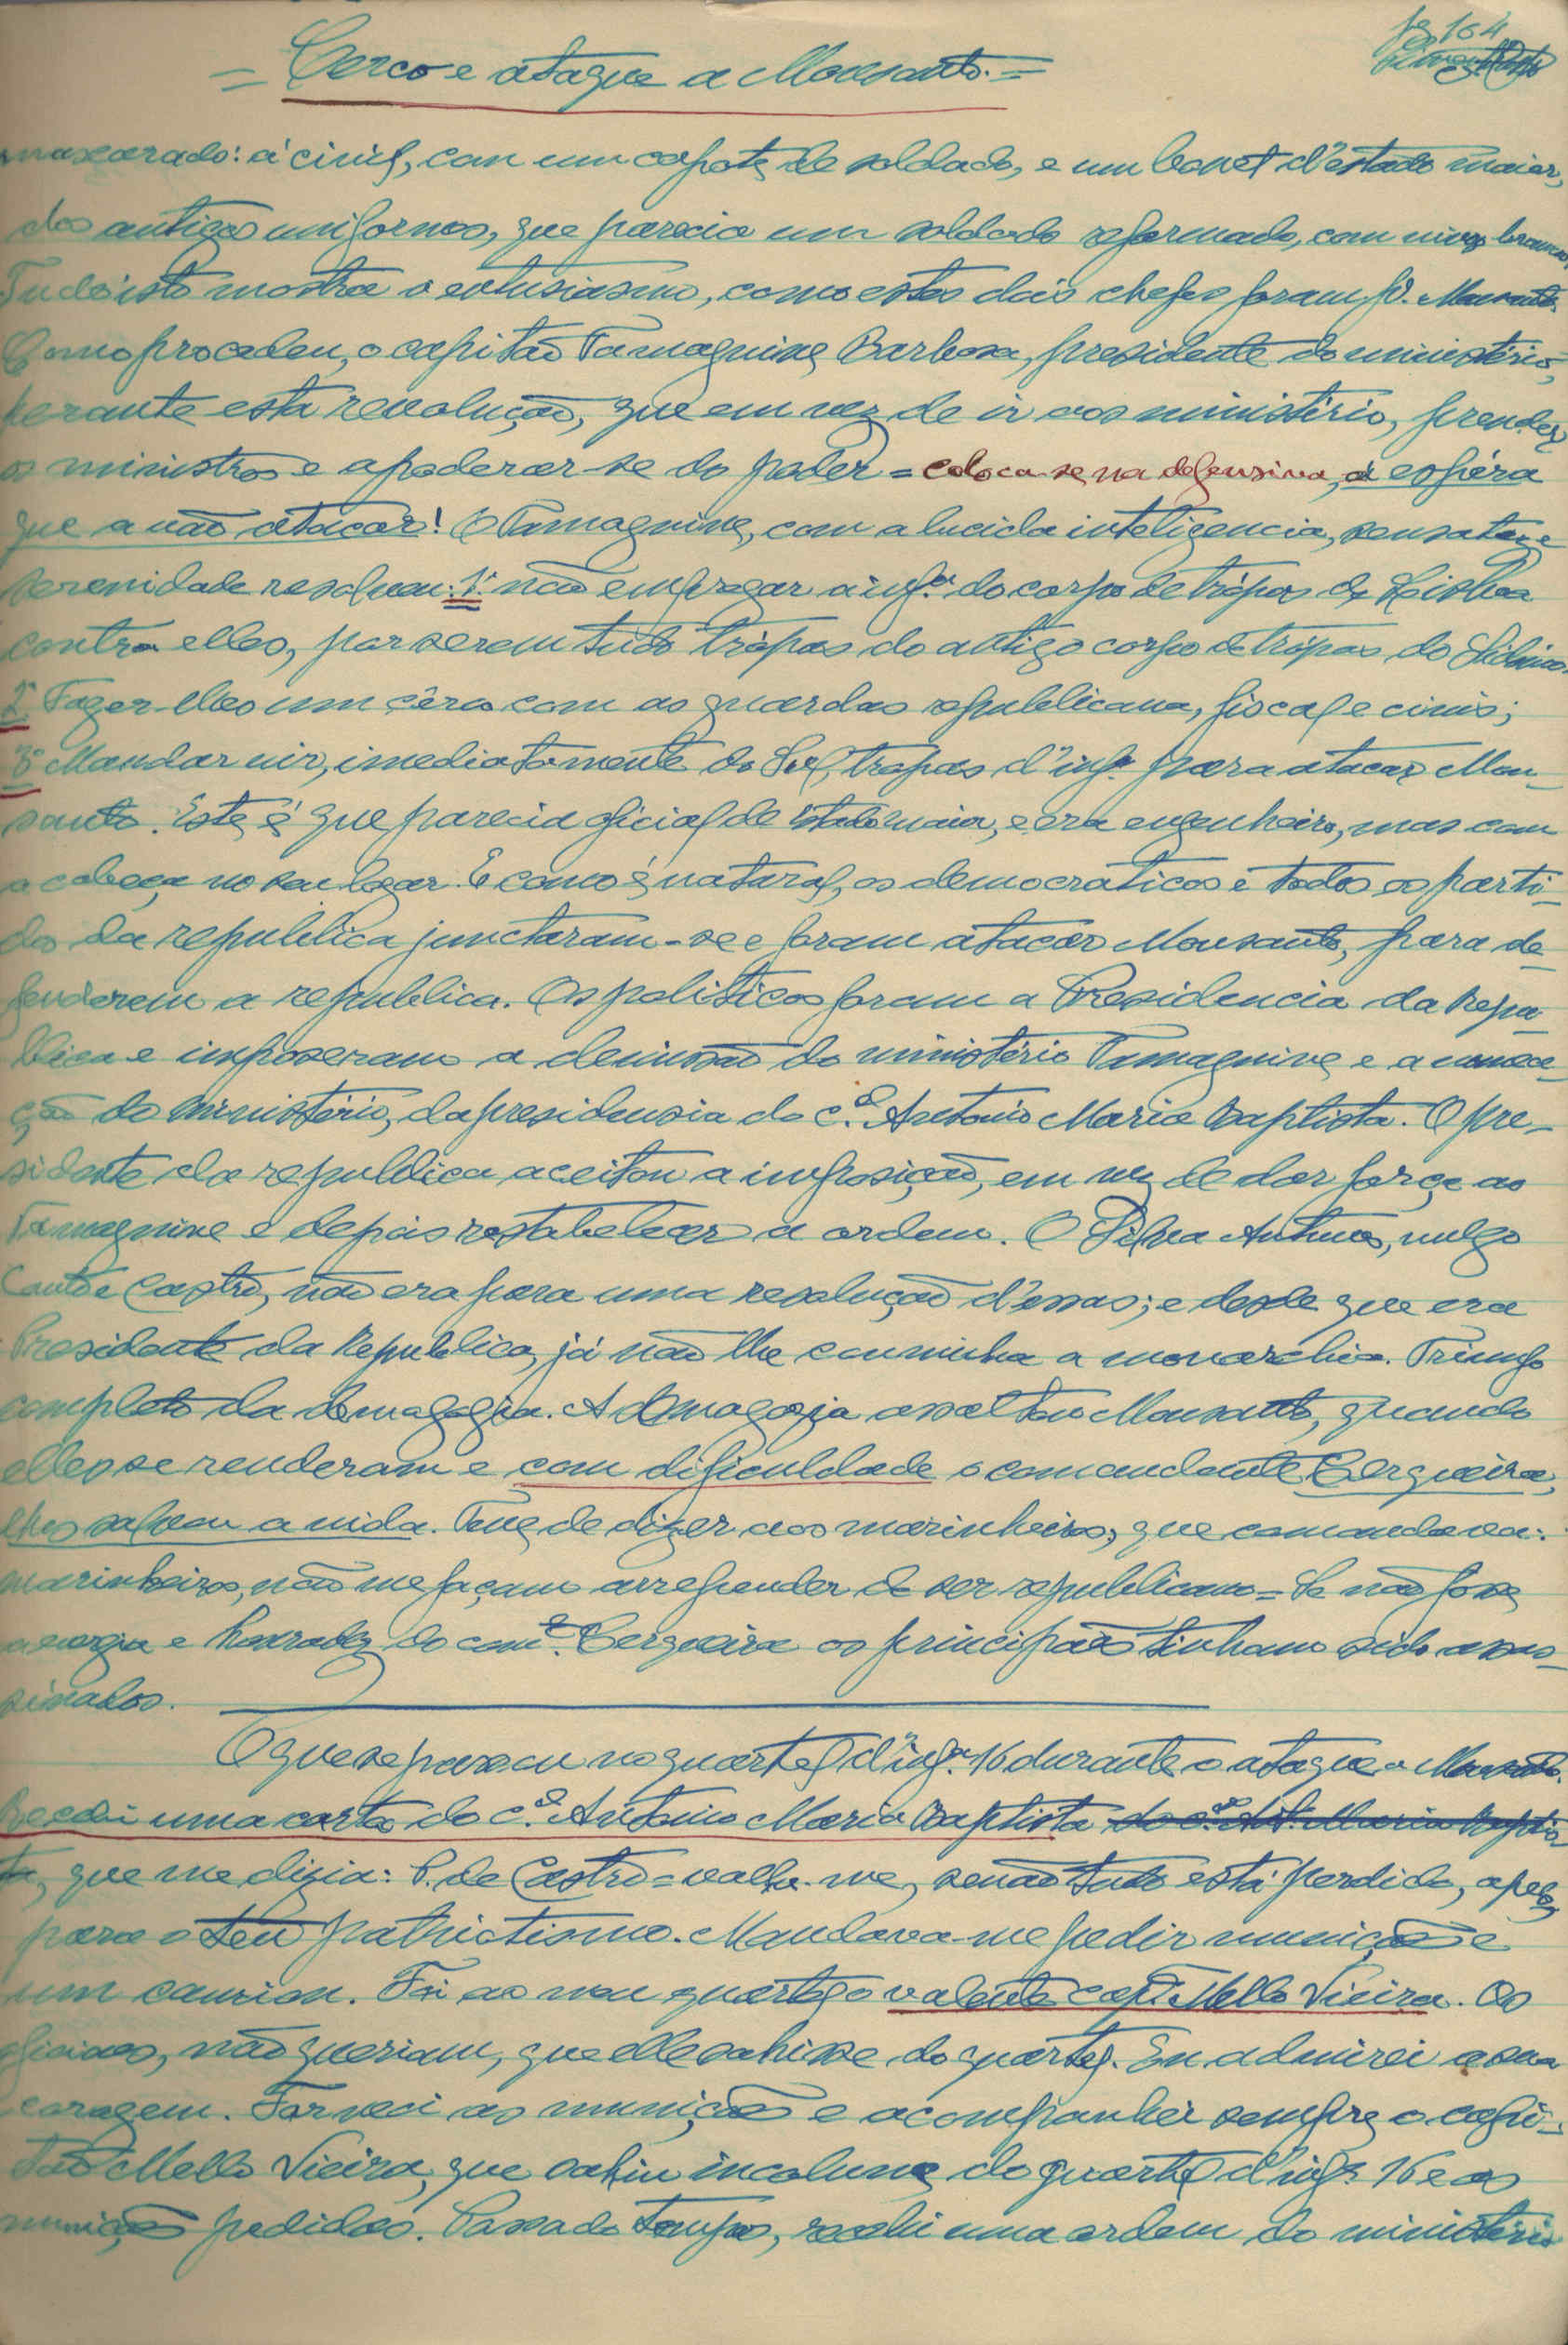 fs 164
= Cerco e ataque a Monsanto. =
mascarado: á civil, com um capote de soldado, e um bonet d'estado maior,
dos antigos uniformes, que parecia um soldado reformado, com
Tudo isto mostra o entusiasmo, como estes dois chefes foram p.ª Monsanto.
Como procedeu, o capitão Tamagnine Barbosa, presidente do ministério,
perante esta revolução, que em vez de ir aos ministério, prender
os ministros e apoderar-se do poder = coloca-se na defensiva, á espéra
que a vão atacar! O Tamagnine, com a lucida inteligencia, sensatez e
serenidade resolveu: 1.º não empregar a inf.ª do corpo de trópas de Lisboa
contra elles, por serem tudo trópas do antigo corpo de trópas do Sidonio.
2º Fazer-lles um cêrco com as guardas republicana, fiscal e civis;
3º Mandar vir, imediatamente do Sul, tropas d'inf.ª para atacar Mon-
santo. Este é que parecia oficial de Estado maior, e era engenheiro, mas com
a cabeça no seu logar. E como é natural, os democraticos e todos os parti-
dos da republica junctaram-se e foram atacar Monsanto, para de-
fenderem a republica. Os politicos foram a Presidencia da Repu-
blica e imposeram a demissão do ministério Tamagnine e a nomea-
ção do ministério, da presidensia do c.el António Maria Baptista. O pre-
sidente da republica aceitou a imposição, em vez de dar força ao
Tamagnine e depois restabelecer a ordem. O Silva Antunes, vulgo
Canto e Castro, não era para uma resolução d'essas; e desde que era
Presidente da Republica, já não lhe convinha a monarchia. Triumfo
completo da demagogia. A demagogia assaltou Monsanto, quando
elles se renderam e com dificuldade o comandante Cerqueira,
lhes salvou a vida. Teve de dizer aos marinheiros, que comandava:
marinheiros, não me façam arrepender de ser republicano = Se não fosse
a energia e honradez do com.te Cerqueira os principaes tinham sido assas-
sinados.
O que se passou no quartel d'inf.ª 16 durante o ataque a Monsanto.
Recebi uma carta do c.el António Maria Baptista do c.el Ant.º Maria Baptis-
ta, que me dizia: P. de Castro = valha-me, senão tudo está perdido, apelo
para o teu patriotismo. Mandava-me pedir munições e
um camion. Foi ao meu quartel o valente cap.ão Mello Vieira. Os
oficiaes, não queriam, que elle sahisse do quartel. Eu admirei a sua
coragem. Forneci as munições e acompanhei sempre o capi-
tão Mello Vieira, que sahiu incolume do quartel d'inf.ª 16 e as
munições pedidas. Passado tempo, recebi uma ordem do ministério